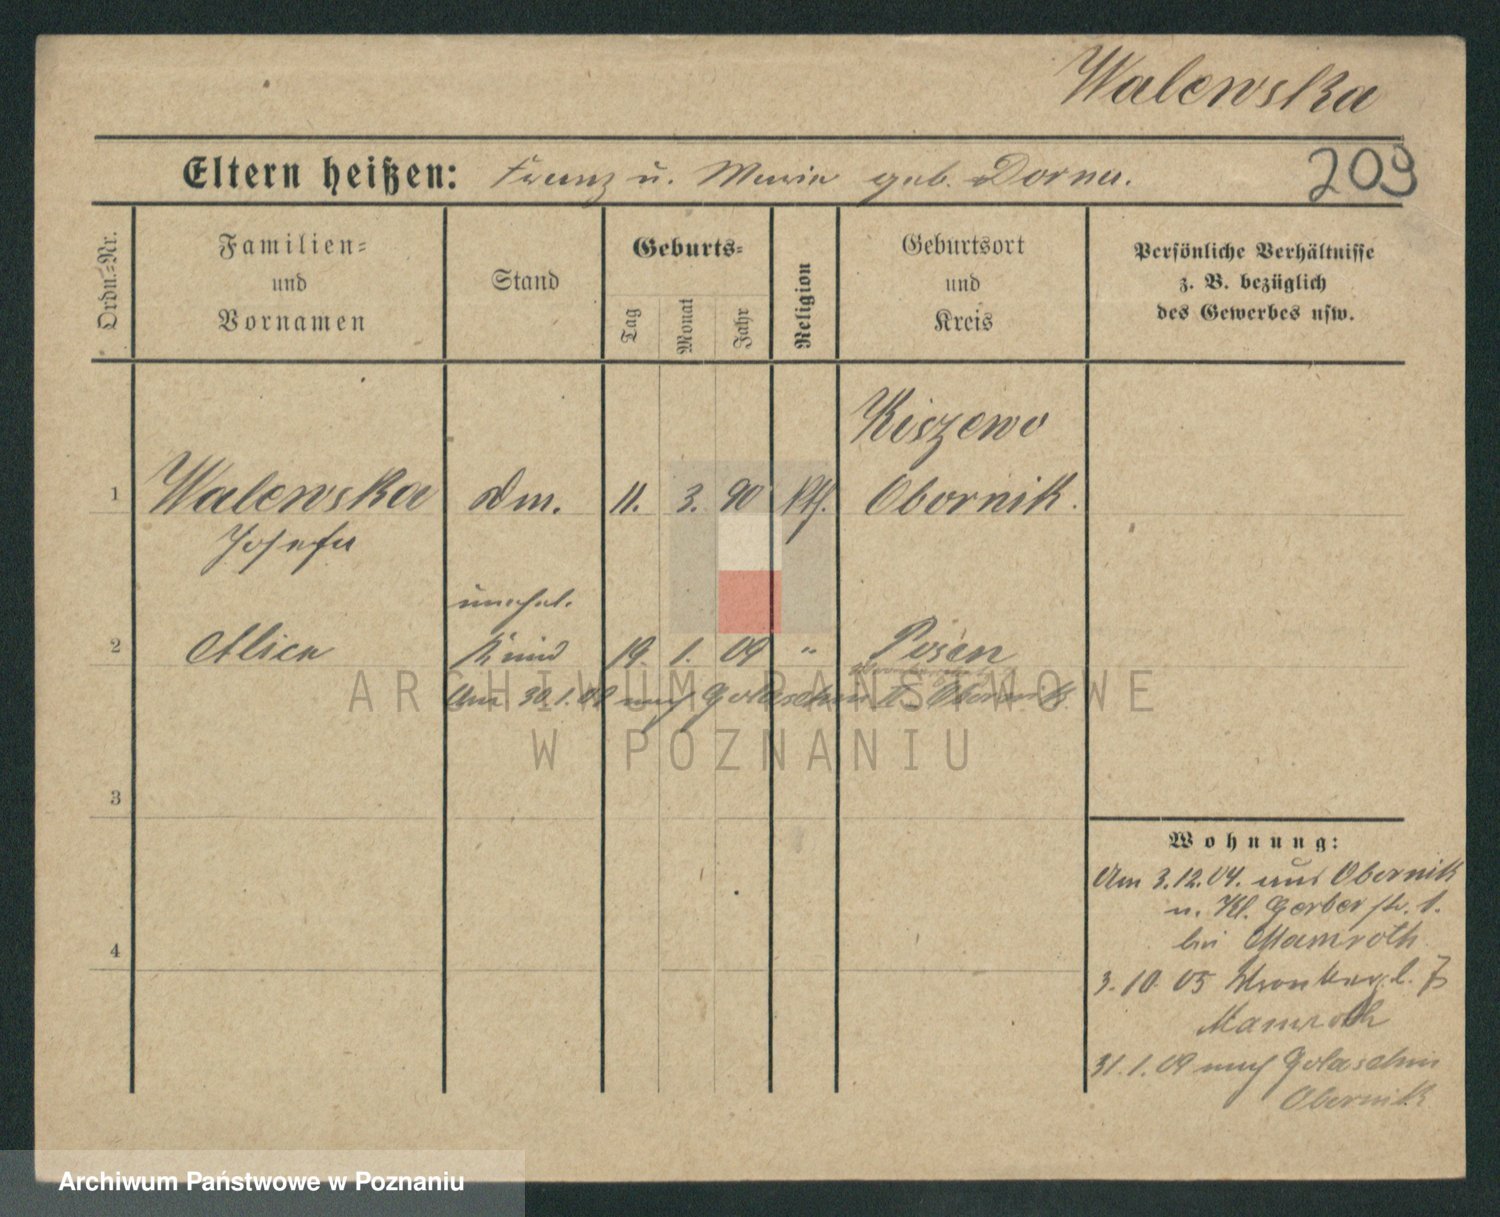 Walewska
Eltern heißen: Franz u. Marie geb. Dorna.
209
Ordn.=Nr.
Familien=
und
Vornamen
Stand
Geburts=
Tag
Monat
Jahr
Religion
Geburtsort
und
Kreis
Persönliche Verhältnisse
z. B. bezüglich
des Gewerbes usw.
Kiszewo
1 Walewska Dm. 11. 3. 90 kth. Obornik.
Josefa
unehel.
2 Alice Kind 19. 1. 09 " Posen
Am 30.1.09 nach Golaschin K. Obornik
ARCHIWUM PAŃSTWOWE
W POZNANIU
3
4
Wohnung:
Am 3.12.04. aus Obornik
n. Kl. Gerberstr. 1.
bei Mamroth
3.10.05 Wronker 7
Mamroth
31.1.09 nach Golaschin
Obornik
Archiwum Państwowe w Poznaniu